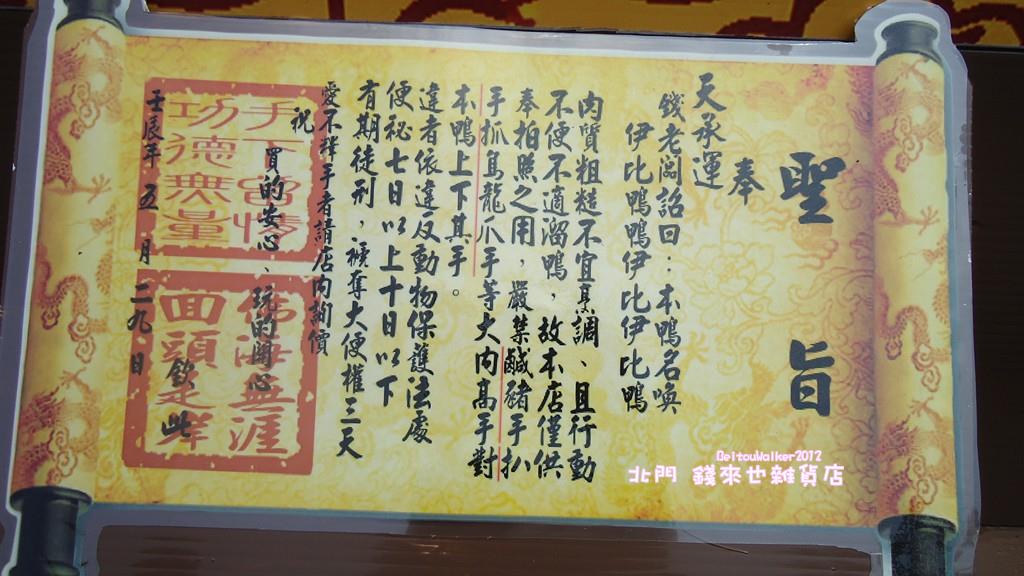 聖旨
奉
天承運
錢老闆詔曰：本鴨名喚
伊比鴨鴨伊比伊比鴨
肉質粗糙不宜烹調、且行動
不便不適溜鴨，故本店僅供
奉拍照之用，嚴禁鹹豬手扒
手抓鳥龍爪手等大內高手對
本鴨上下其手。
違者依違反動物保護法處
便秘七日以上十日以下
有期徒刑，褫奪大便權三天
愛不釋手者請店內詢價
祝
買的安心、玩的開心
欽此
壬辰年五月二九日
手下留情
功德無量
佛海無涯
面頭是岸
BeitouWalker2012
北門 錢來也雜貨店